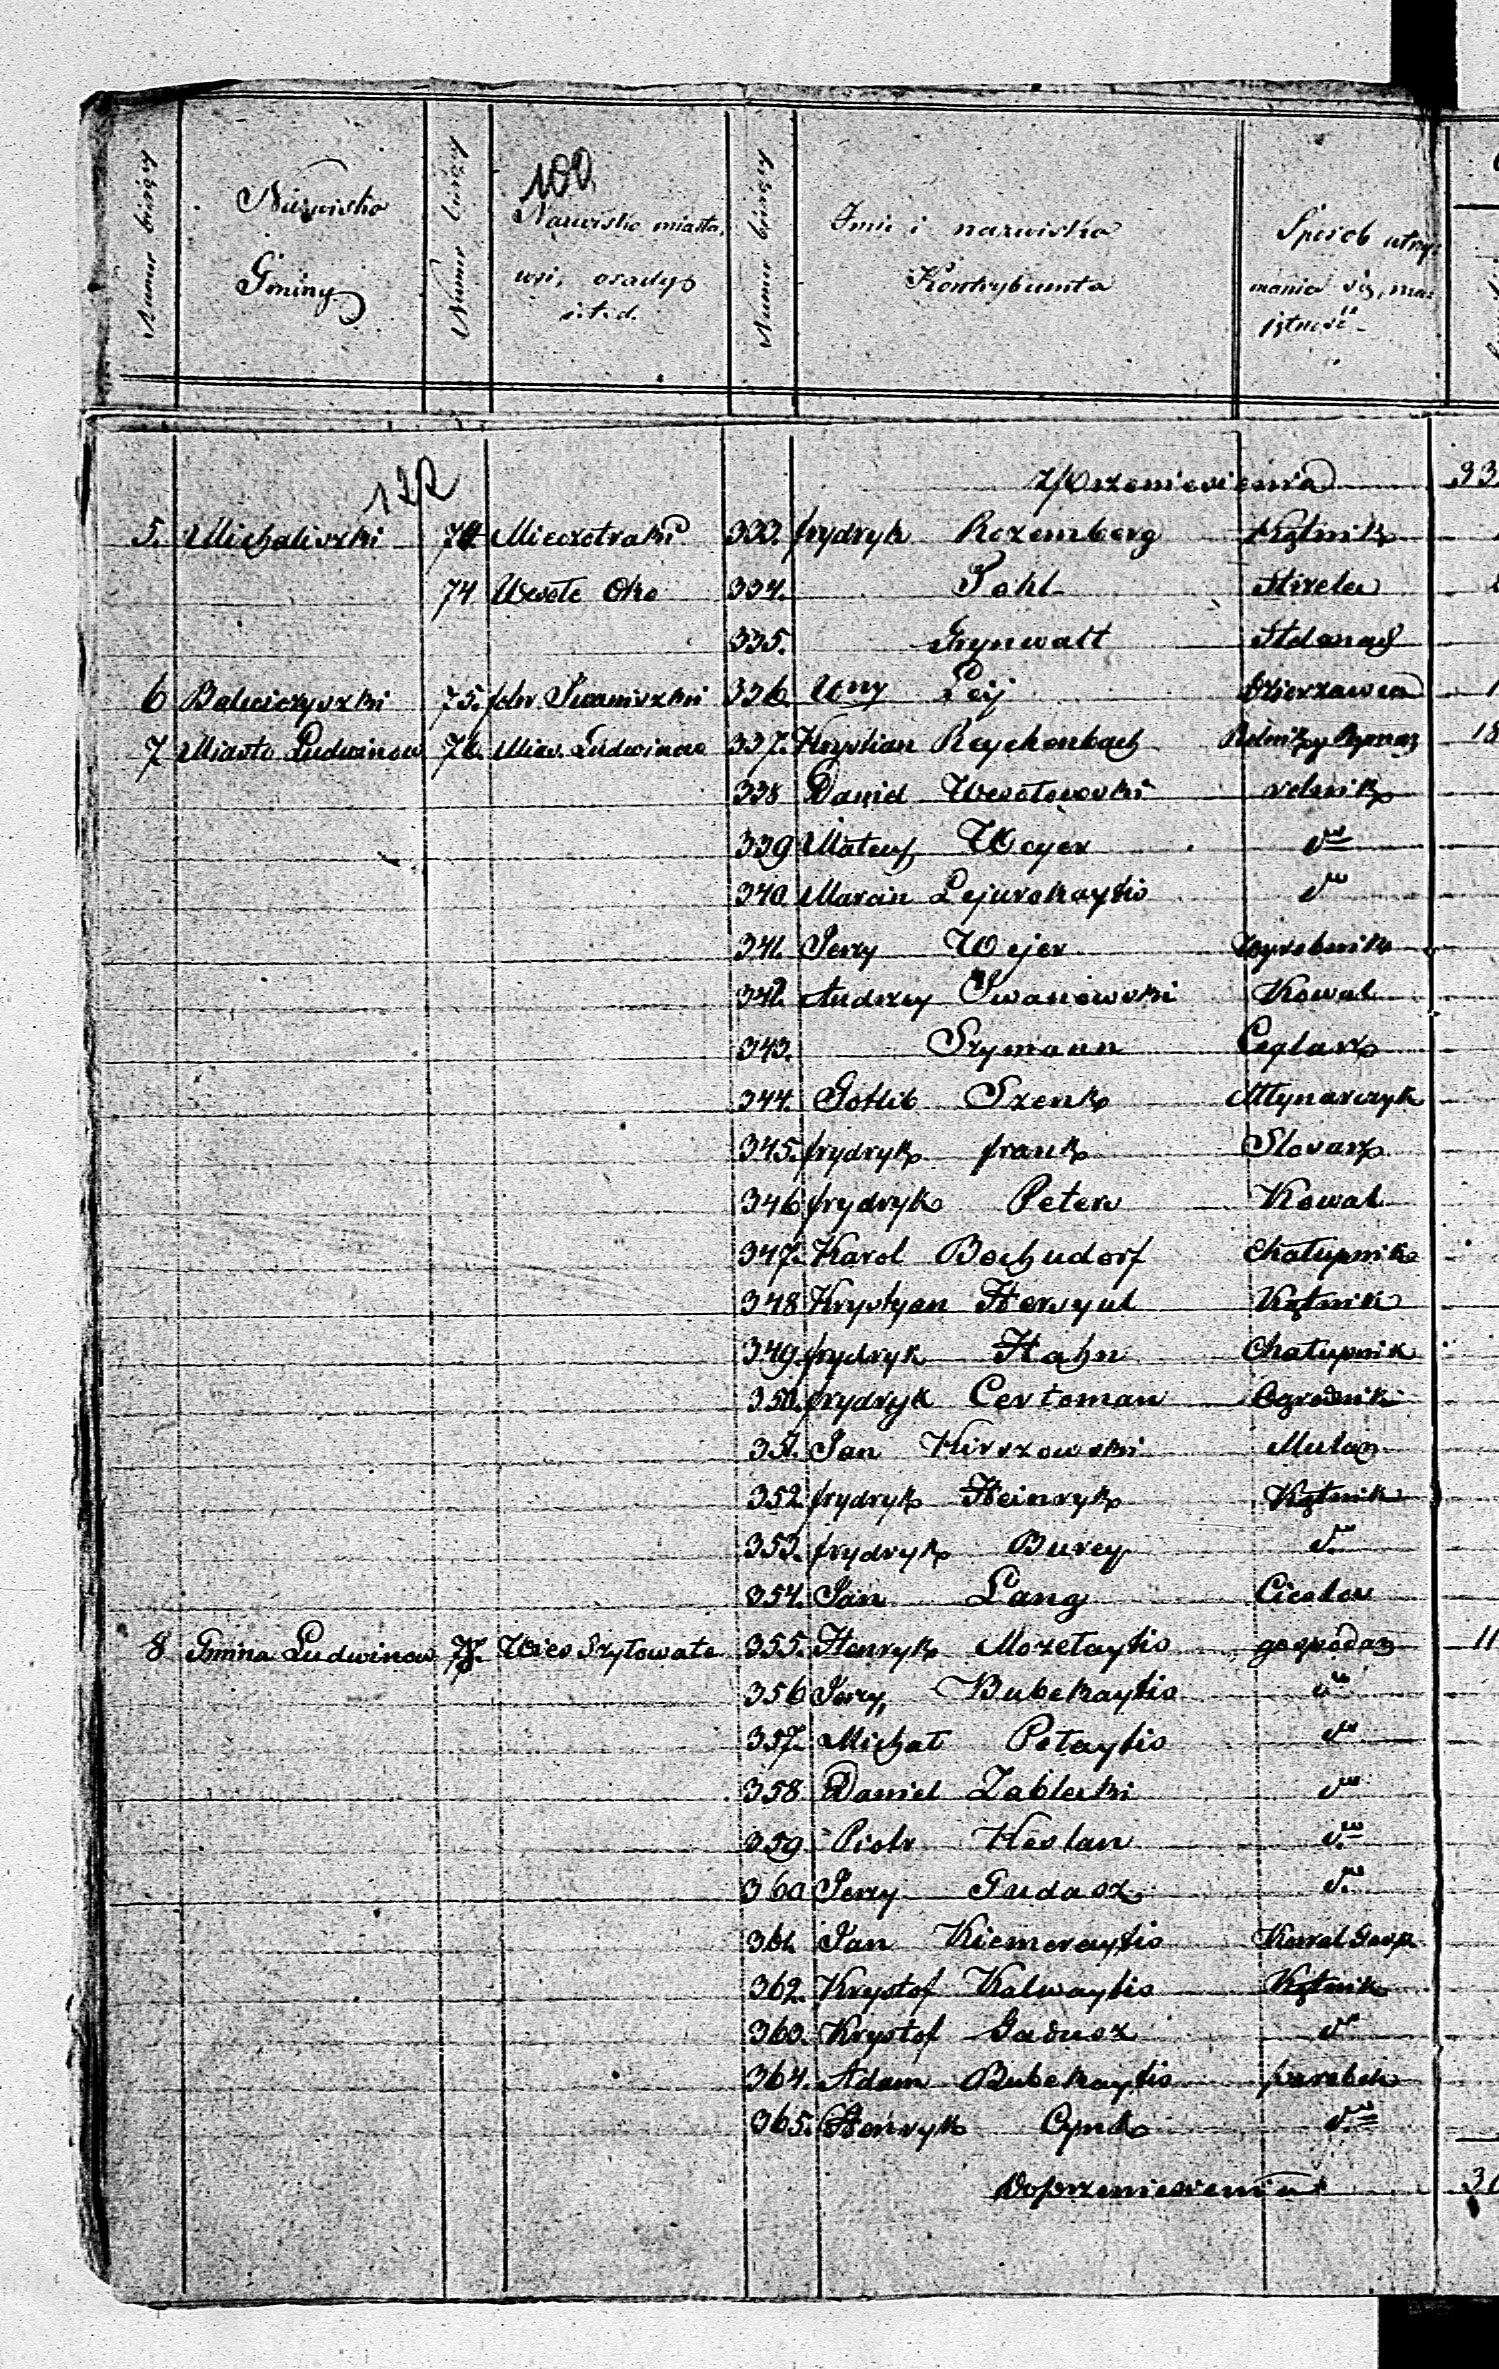 Numer bieżący Nazwisko Gminy Numer bieżący 100 Nazwisko miasta, wsi, osady i t. d. Numer bieżący Imie i nazwisko Kontrybuenta Sposób utrzymania się, majętność
122
Z Przeniesienia 93
5. Michaliszki Frydryk Rozemberg Kątnik
74 Wesołe Oko 334. Pohl Strzelec
335. Grynwalt
6 75. 336. Ley Dzierżawca
7 Miasto Ludwinow 76. Mias. Ludwinow 337. Krystian Reychenbach 18
338 Daniel Wesołowski rolnik
339 Mateusz Weyer do
340 Marcin do
341. Jerzy Wejer Wyrobnik
342. Andrzey Iwanowski Kowal
343. Szymann Ceglarz
344. Gotlib Szenk Młynarczyk
345. Frydryk Frank Stolarz
346 Frydryk Peters Kowal
347. Karol Bochudorf Chałupnik
348 Krystyan Kątnik
349. Frydryk Hahn Chałupnik
350. Frydryk Ogrodnik
351. Jan Kirszowski Mularz
352. Frydryk Heinryk Kątnik
353. Frydryk Burey do
354. Jan Lang Cieśla
8 Gmina Ludwinow 77. Wies 355. Henryk Mozetaytis gospodarz 11
356 Jerzy Bubekaytis do
357. Michał Petaytis do
358. Daniel Zablecki do
359. Piotr Keslan do
360 Jerzy Gudasz do
361. Jan Kiemeraytis Kowal Gosp.
362. Krysztof Kalwaytis Kątnik
363. Krysztof Gadusz do
364. Adam Bubekaytis parobek
365. Henryk Cynk do
Do przeniesienia 31